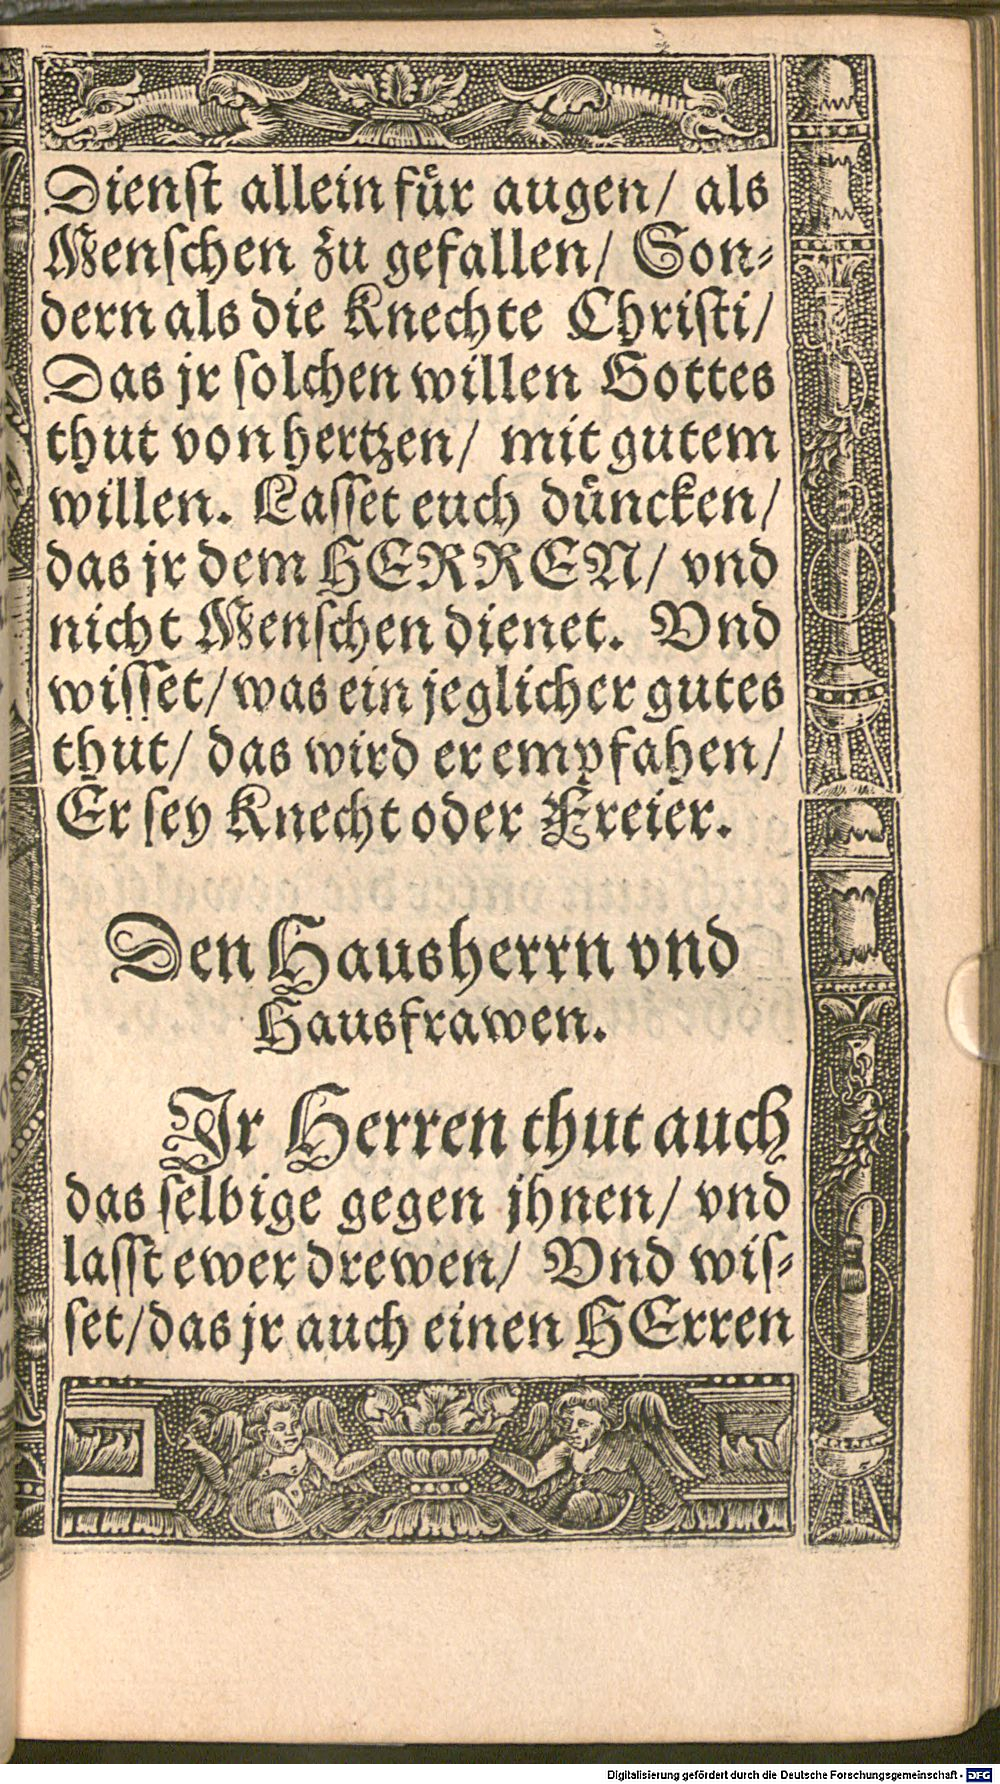 Dienſt allein fuͤr augen/ als
Menſchen zu gefallen/ Son⸗
dern als die Knechte Chriſti/
Das jr ſolchen willen Gottes
thut von hertzen/ mit gutem
willen. Laſſet euch duͤncken/
das jr dem HERREN/ vnd
nicht Menſchen dienet. Vnd
wiſſet/ was ein jeglicher gutes
thut/ das wird er empfahen/
Er ſey Knecht oder Freier.
Den Hausherrn vnd
Hausfrawen.
Jr Herren thut auch
das ſelbige gegen jhnen/ vnd
laſſt ewer drewen/ Vnd wiſ⸗
ſet/ das jr auch einen HErren
Digitalisierung gefördert durch die Deutsche Forschungsgemeinschaft - DFG